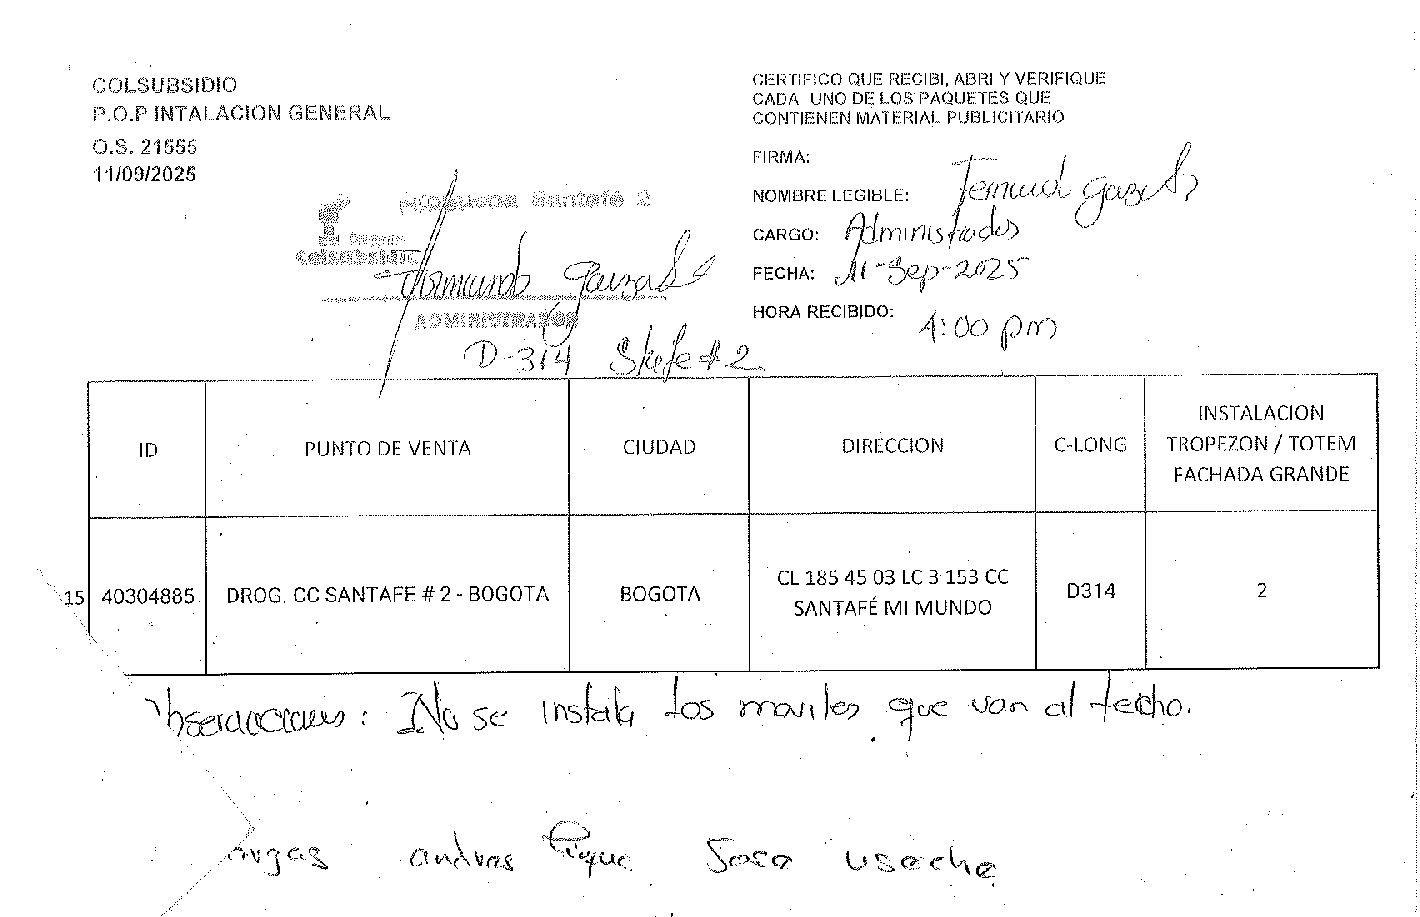 COLSUBSIDIO
P.O.P INTALACION GENERAL
O.S. 21555
11/09/2025
CERTIFICO QUE RECIBI, ABRI Y VERIFIQUE
CADA UNO DE LOS PAQUETES QUE
CONTIENEN MATERIAL PUBLICITARIO
FIRMA:
NOMBRE LEGIBLE:
CARGO: Administrador
FECHA: 11-Sep-2025
HORA RECIBIDO: 4:00 pm
Santafé 2
Colsubsidio
ADMINISTRADOR
D-314 # 2
ID PUNTO DE VENTA CIUDAD DIRECCION C-LONG INSTALACION
TROPEZON / TOTEM
FACHADA GRANDE
15 40304885 DROG. CC SANTAFE # 2 - BOGOTA BOGOTA CL 185 45 03 LC 3 153 CC
SANTAFÉ MI MUNDO D314 2
No se instala los moviles que van al techo.
useche